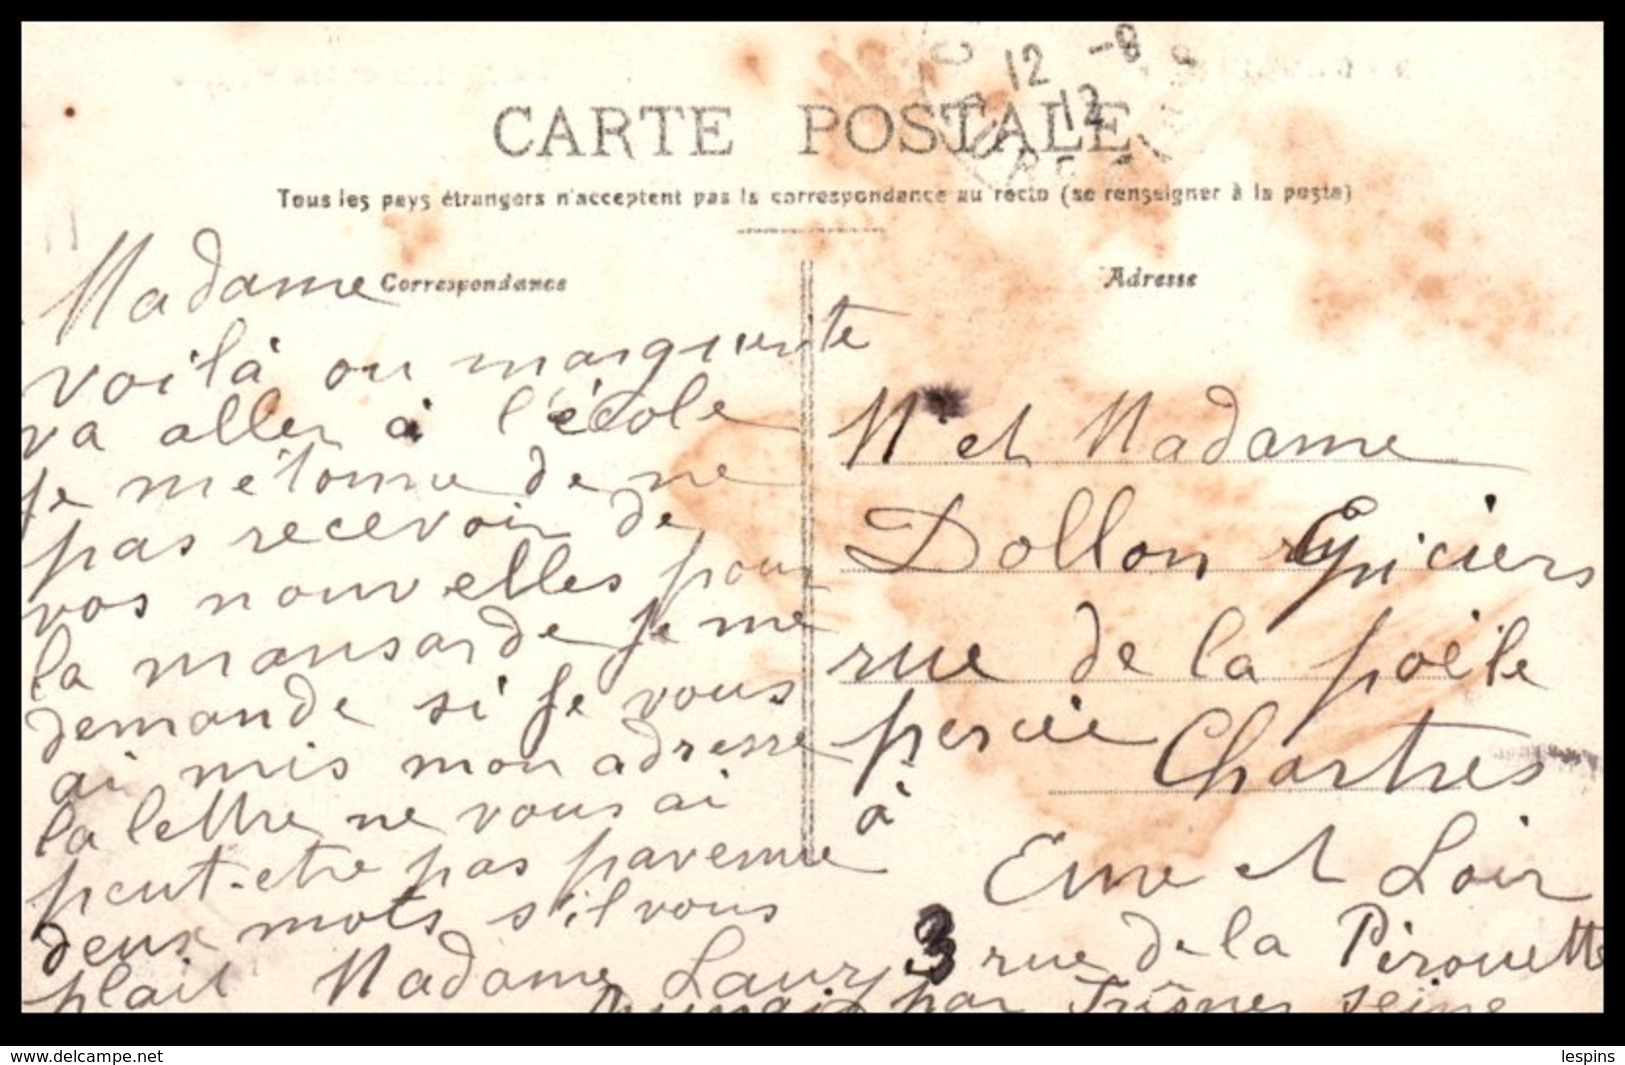 12 -8
12
CARTE POSTALE
Tous les pays étrangers n'acceptent pas la correspondance au recto (se renseigner à la poste)
Correspondance
Adresse
Madame
voilà ou marguerite
va aller à l'école
je m'étonne de ne
pas recevoir de
vos nouvelles pour
la mansarde je me
demande si je vous
ai mis mon adresse
la lettre ne vous ai
peut-etre pas parvenue
deux mots s'il vous
plait Madame Laury 3 rue de la Pirouette
par Fresnes seine
Mr et Madame
Dollon Epiciers
rue de la poële
percée
à Chartres
Eure et Loir
delcampe.net
lespins